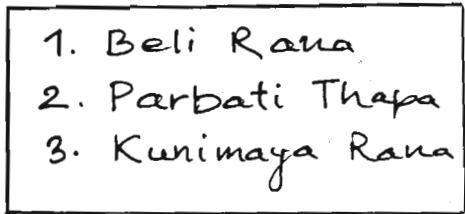 1. Beli Rana
2. Parbati Thapa
3. Kunimaya Rana